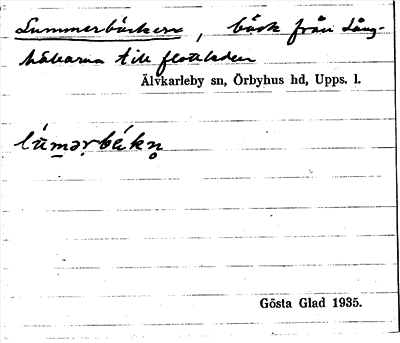 Lummerbäcken, bäck från Lång-
håbarna till flottleden
Älvkarleby sn, Örbyhus hd, Upps. l.
lùmərbékn̥
Gösta Glad 1935.